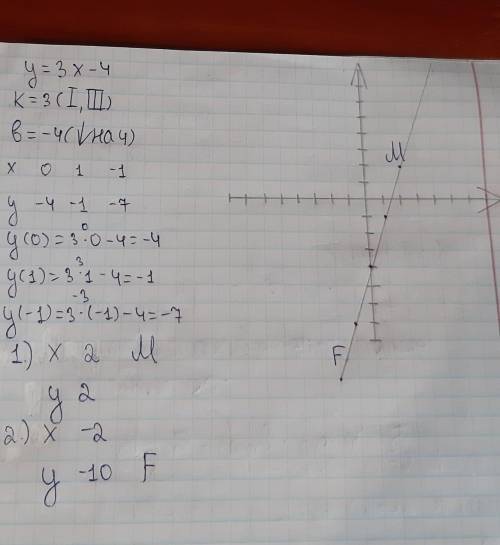 y=3x-4
K=3(I,III)
b=-4(↓на4)
x 0 1 -1
y -4 -1 -7
0
y(0)=3·0-4=-4
3
y(1)=3·1-4=-1
-3
y(-1)=3·(-1)-4=-7
1.) x 2 M
y 2
2.) x -2
y -10 F
M
F